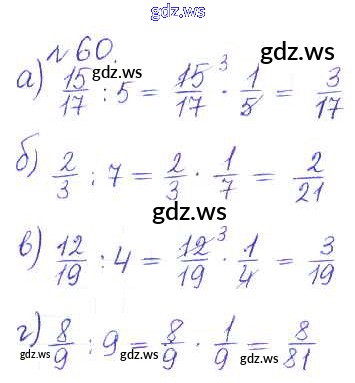 gdz.ws
№ 60.
gdz.ws
а) 15/17 : 5 = 15/17 · 1/5 = 3/17
3
gdz.ws
б) 2/3 : 7 = 2/3 · 1/7 = 2/21
gdz.ws
в) 12/19 : 4 = 12/19 · 1/4 = 3/19
3
gdz.ws
г) 8/9 : 9 = 8/9 · 1/9 = 8/81
gdz.ws gdz.ws gdz.ws